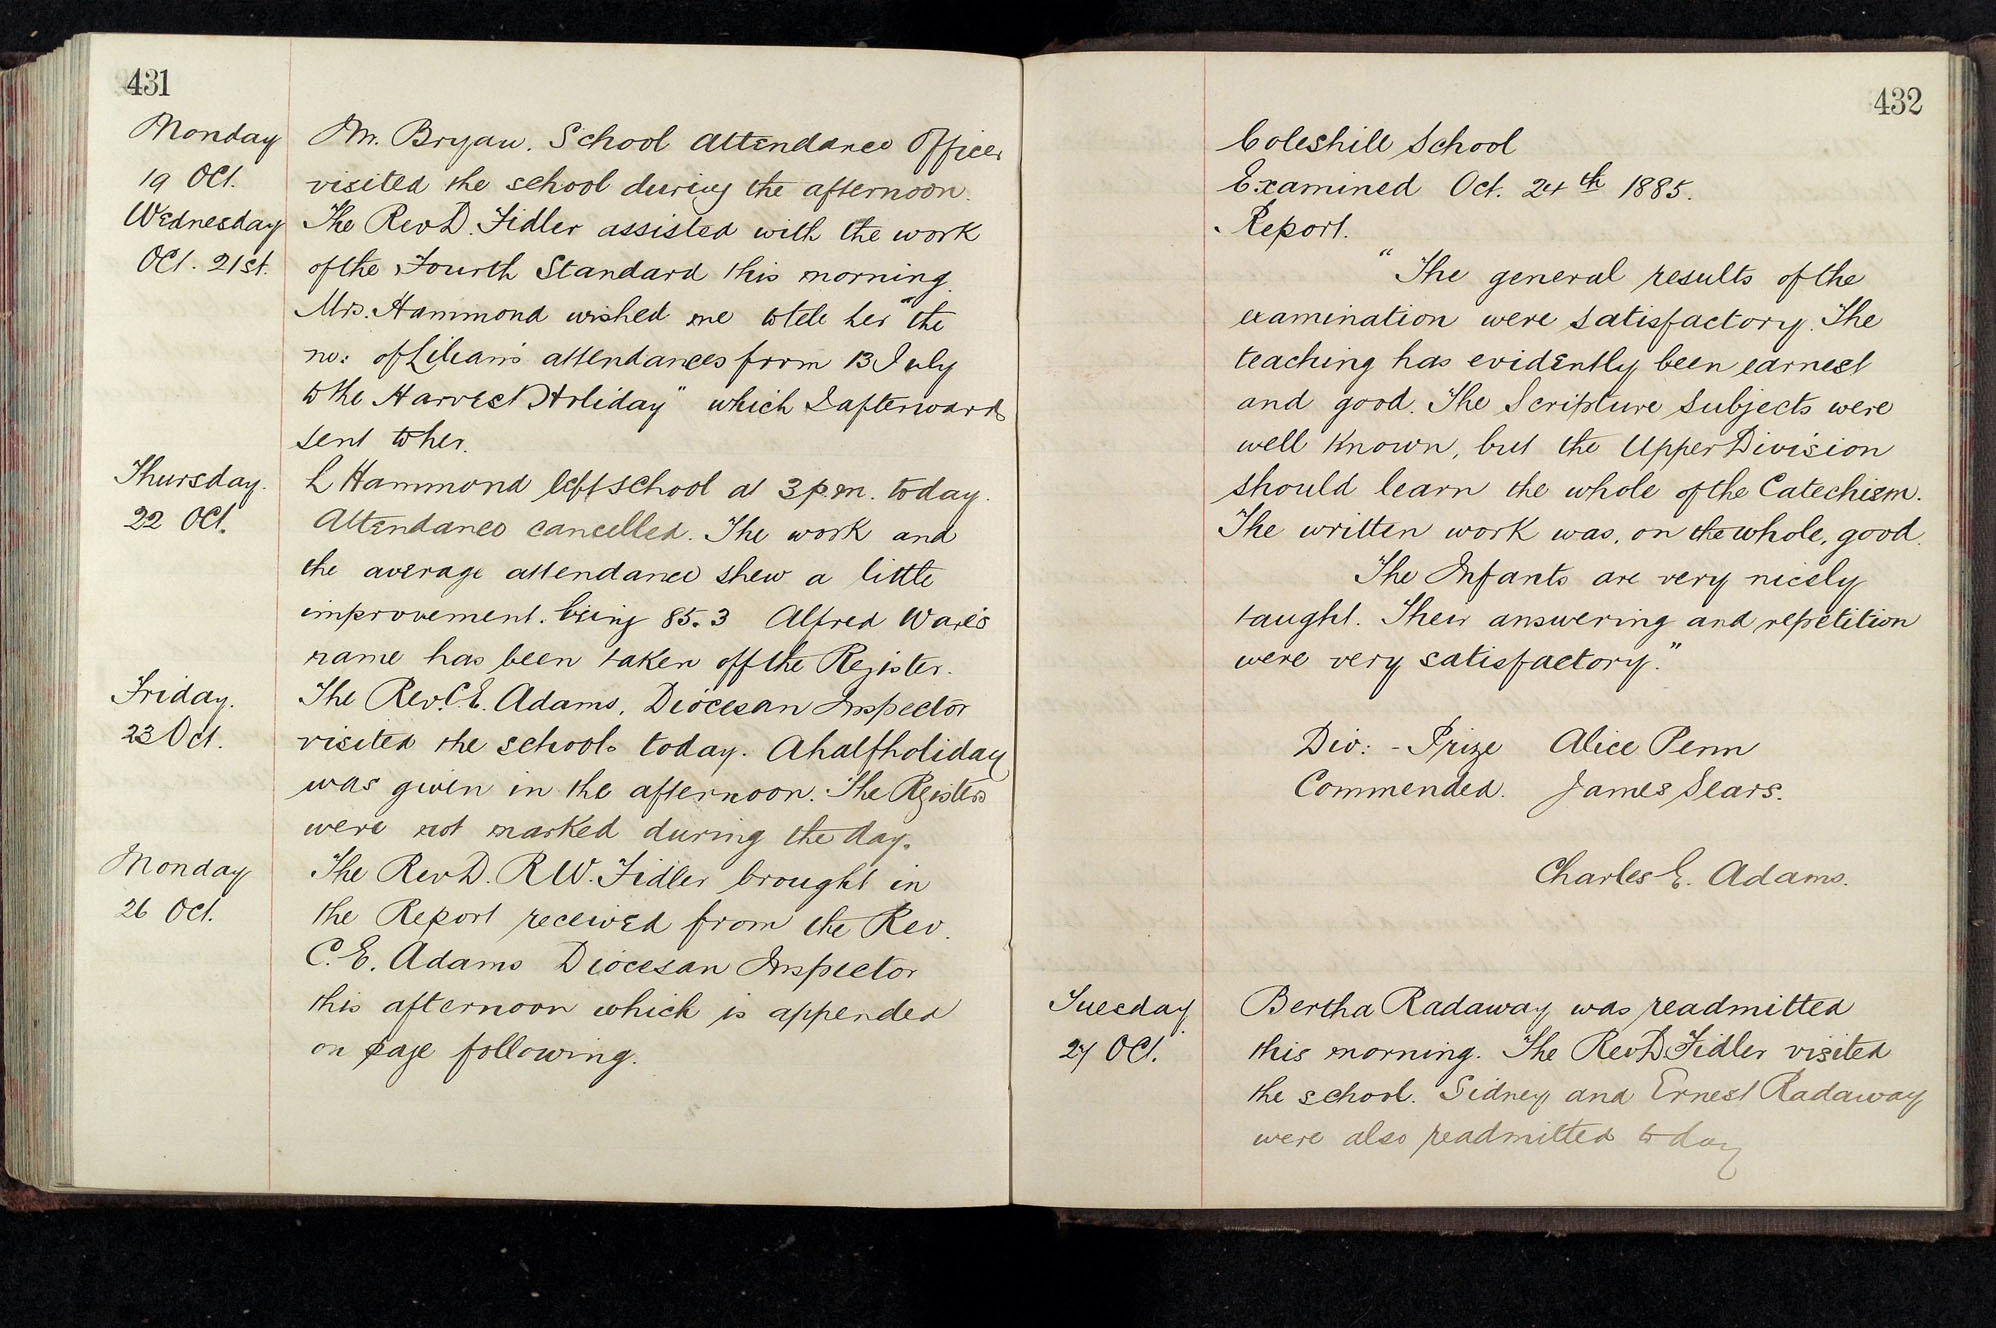 431
Monday Mr. Bryan. School Attendance Officer
19 Oct. visited the school during the afternoon.
Wednesday The Revd. Fidler assisted with the work
Oct. 21st. of the Fourth Standard this morning.
Mrs. Hammond wished me to tell her "the
no: of Lilian's attendances from 13 July
to the Harvest Holiday" which I afterwards
sent to her.
Thursday. L Hammond left school at 3 p.m. today.
22 Oct. Attendance cancelled. The work and
the average attendance shew a little
improvement. being 85.3 Alfred Ware's
name has been taken off the Register.
Friday. The Rev. C. E. Adams, Diocesan Inspector
23 Oct. visited the schools today. A half holiday
was given in the afternoon. The Registers
were not marked during the day.
Monday The Revd. R W. Fidler brought in
26 Oct. the Report received from the Rev.
C. E. Adams Diocesan Inspector
this afternoon which is appended
on page following.
432
Coleshill School
Examined Oct. 24th 1885.
Report.
"The general results of the
examination were satisfactory. The
teaching has evidently been earnest
and good. The Scripture subjects were
well known, but the Upper Division
should learn the whole of the Catechism.
The written work was, on the whole, good.
The Infants are very nicely
taught. Their answering and repetition
were very satisfactory."
Div: - Prize Alice Penn
Commended. James Sears.
Charles E. Adams.
Tuesday Bertha Radaway was readmitted
27 Oct. this morning. The Revd Fidler visited
the school. Sidney and Ernest Radaway
were also readmitted to day